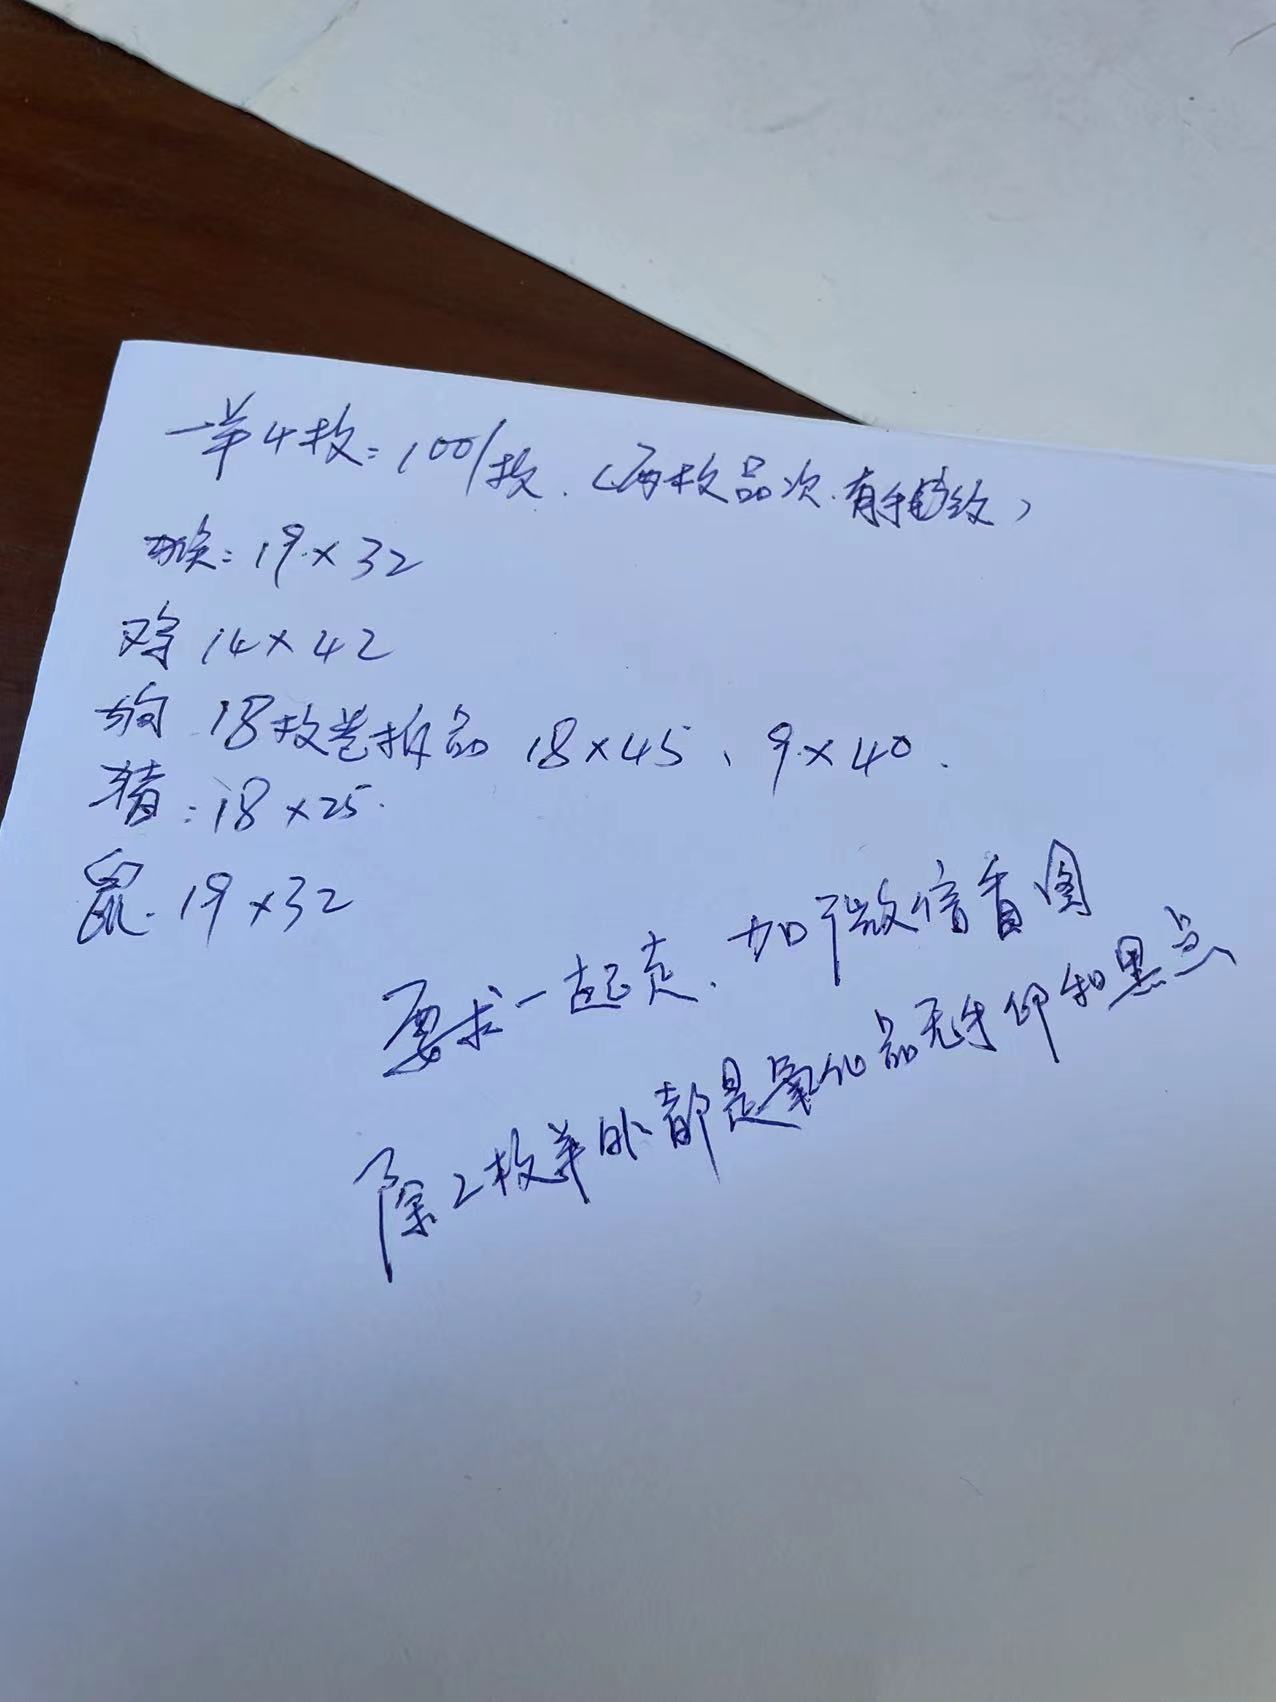 一羊4枚:100/枚.(两枚品次.有手指纹)
猴:19×32
鸡 14×42
狗 18枚卷拆品 18×45、9×40.
猪:18×25.
鼠.19×32
要求一起走.加微信看图
除2枚羊外都是氧化品无手印和黑点